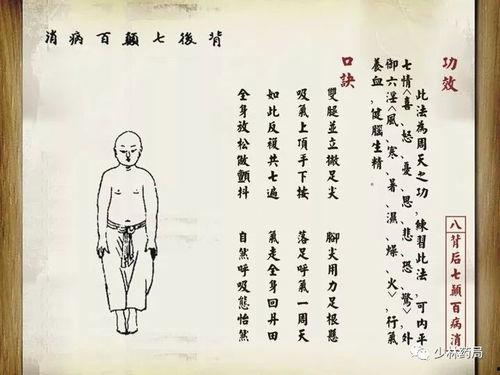 背後七顛百病消
功效
此法為周天之功，練習此法，可內平
七情<喜、怒、憂、思、悲、恐、驚>，外
御六淫<風、寒、暑、濕、燥、火>，行氣
養血，健腦生精。
口訣
雙腿並立撤足尖 腳尖用力足根懸
吸氣上頂手下按 落足呼氣一周天
如此反復共七遍 氣走全身回丹田
全身放松做顫抖 自然呼吸態怡然
八背后七顛百病消
少林药局